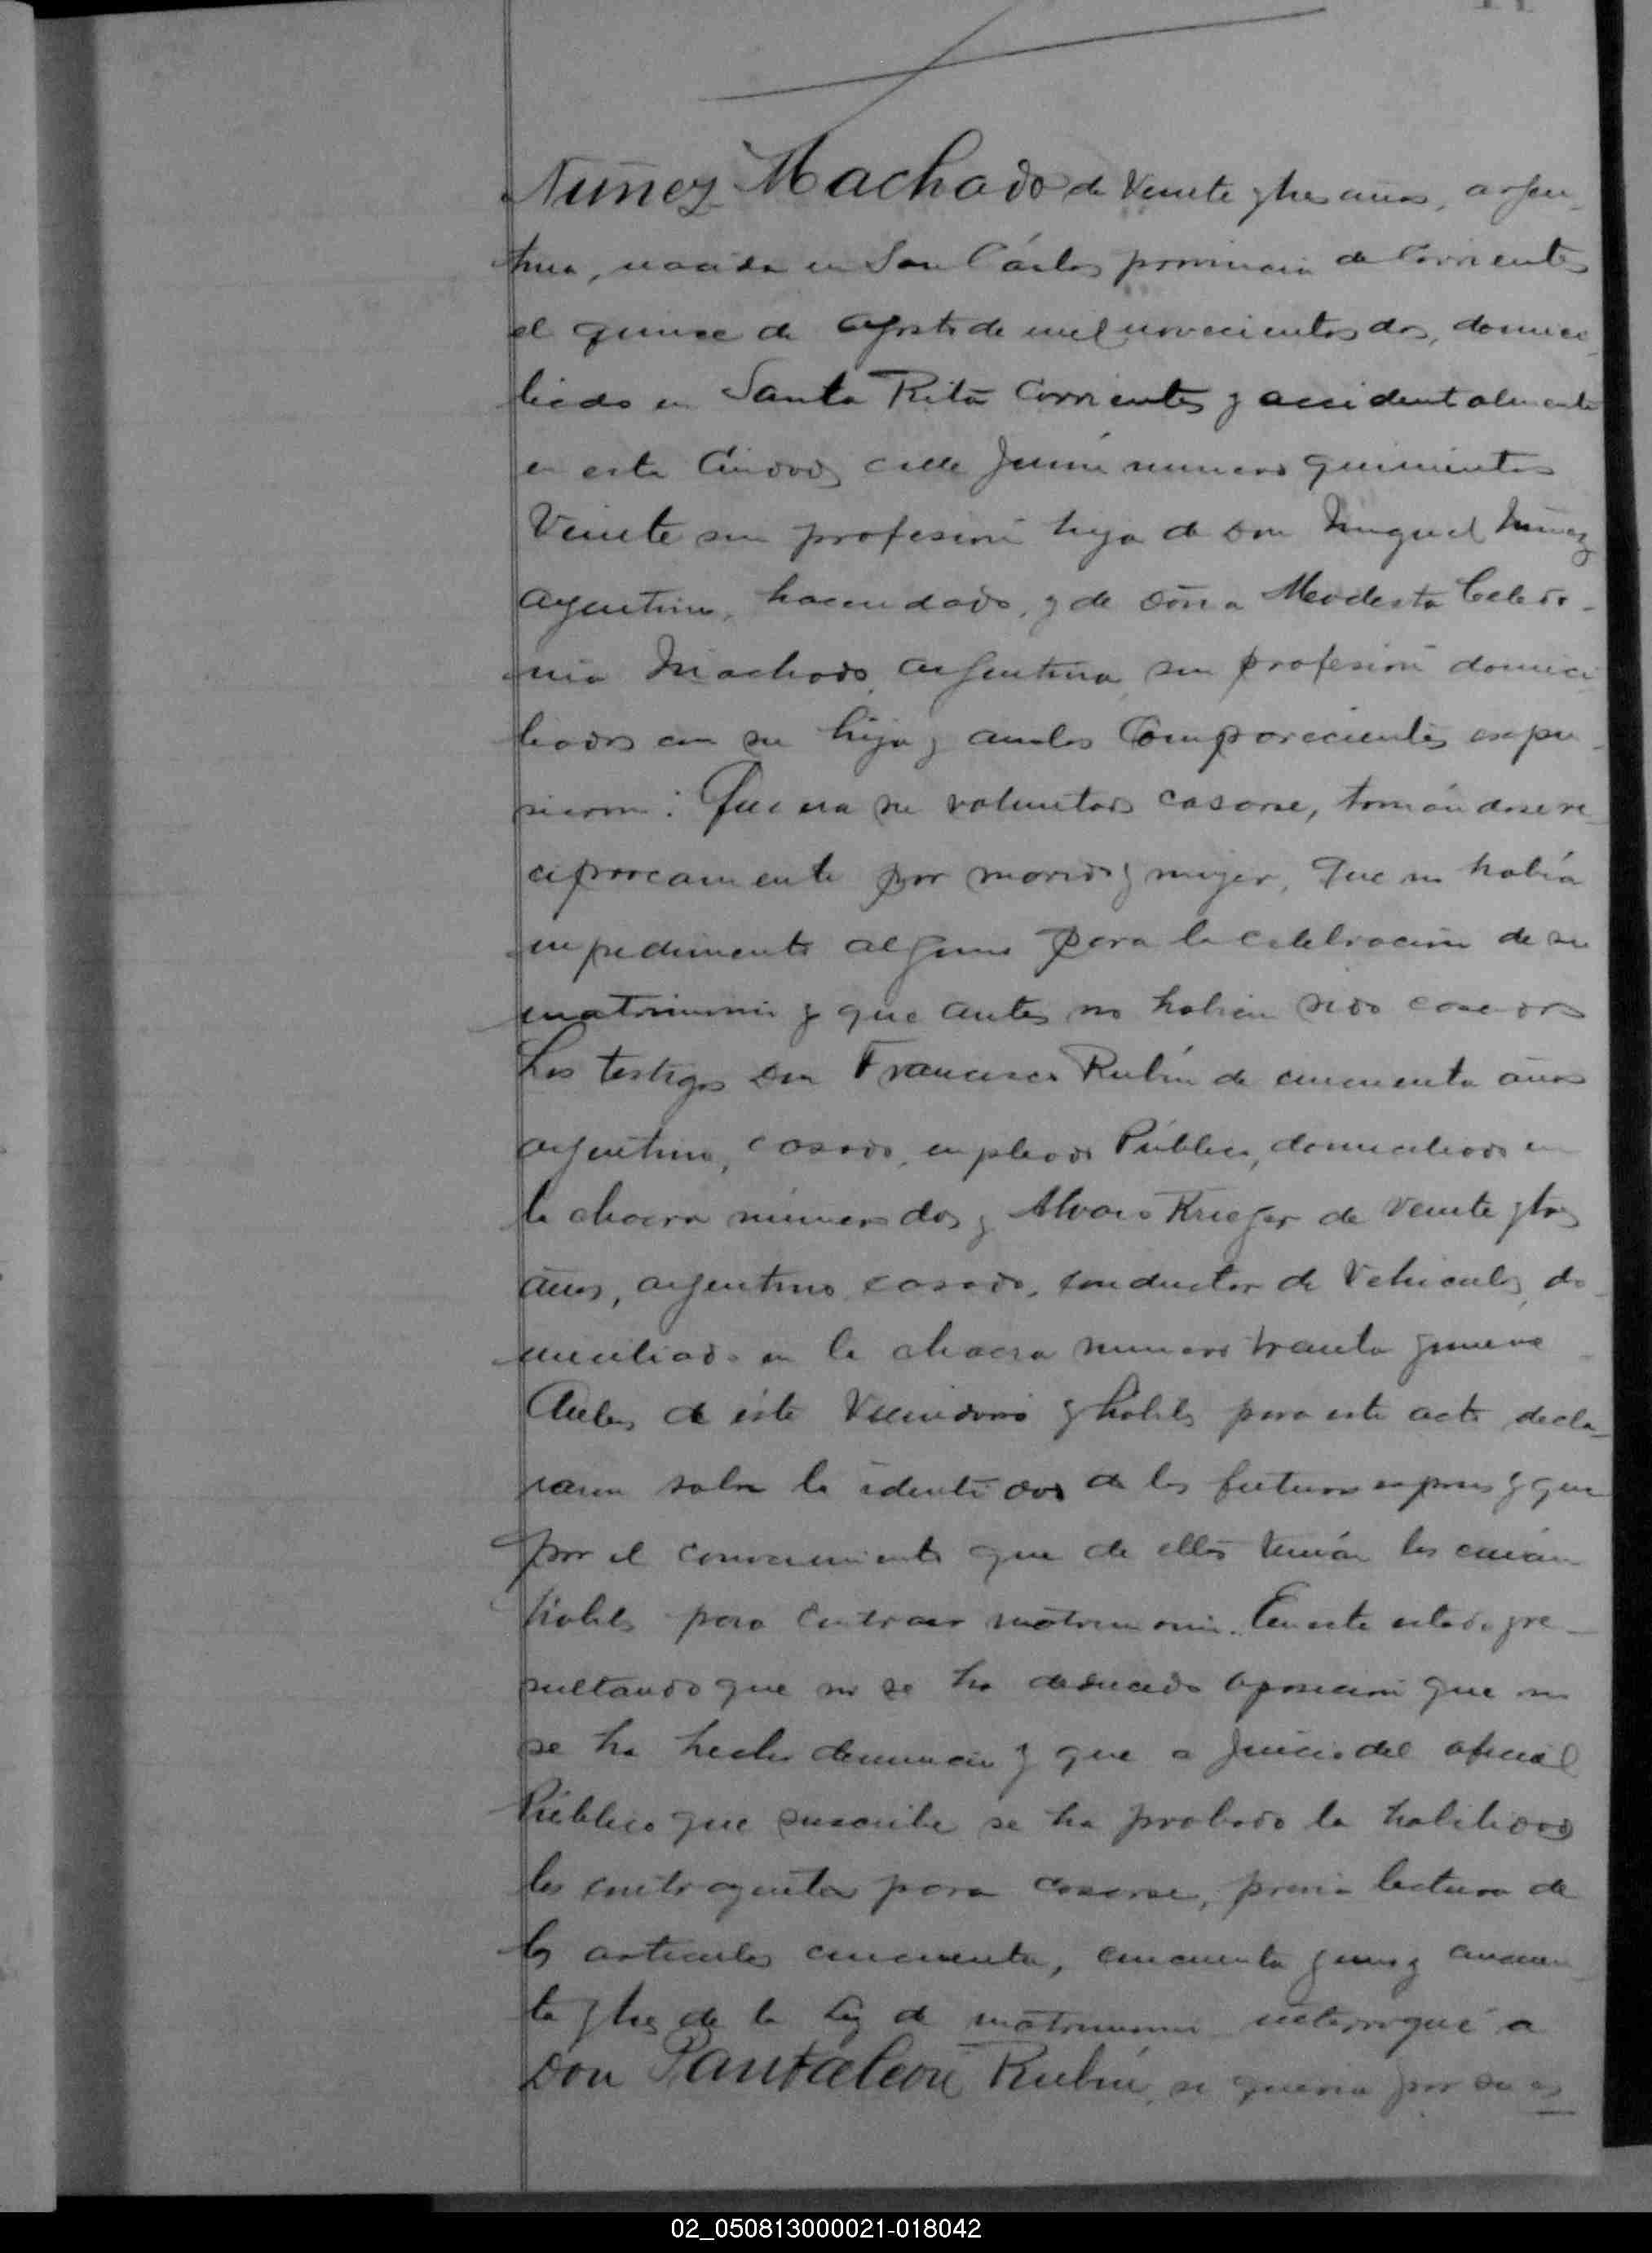 Nuñez Machado de Veinte y tres años, argen-
tina, nacida en San Cárlos provincia de Corrientes
el quince de Agosto de mil novecientos dos, domici-
liada en Santa Rita Corrientes y accidentalmente
en esta Ciudad, calle Junín número quinientos
Veinte sin profesión hija de Don Miguel Nuñez
argentino, hacendado, y de Doña Modesta Celedo-
nia Machado, argentina, sin profesión domici
liados con su hija y ambos Comparecientes expu-
sieron: Que era su voluntad casarse, tomándose re-
ciprocamente por marido y mujer, Que no había
impedimento alguno para la celebración de su
matrimonio y que antes no habían sido casados
Los testigos Don Francisco Rubin de cincuenta años
argentino, casado, empleado Público, domiciliado en
la chacra número dos y Alvaro Krieger de veinte y tres
años, argentino, casado, conductor de Vehiculos, do-
miciliado en la chacra número treinta y nueve
Ambos de éste Vecindario y hábiles para este acto decla-
raron sobre la identidad de los futuros esposos y que
por el conocimiento que de ellos tenían los creían
hábiles para contraer matrimonio. En este estado y re-
sultando que no se ha deducido oposición que no
se ha hecho denuncia y que a juicio del oficial
Público que suscribe se ha probado la habilidad
los contrayentes para casarse, previa lectura de
los artículos cincuenta, cincuenta y uno y cincuen
ta y tres de la Ley de matrimonio interrogué a
Don Pantaleón Rubin, si quería por su es
02_050813000021-018042